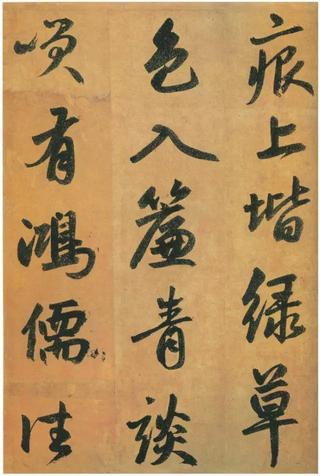 痕上堦綠草
色入簾青談
咲有鴻儒往